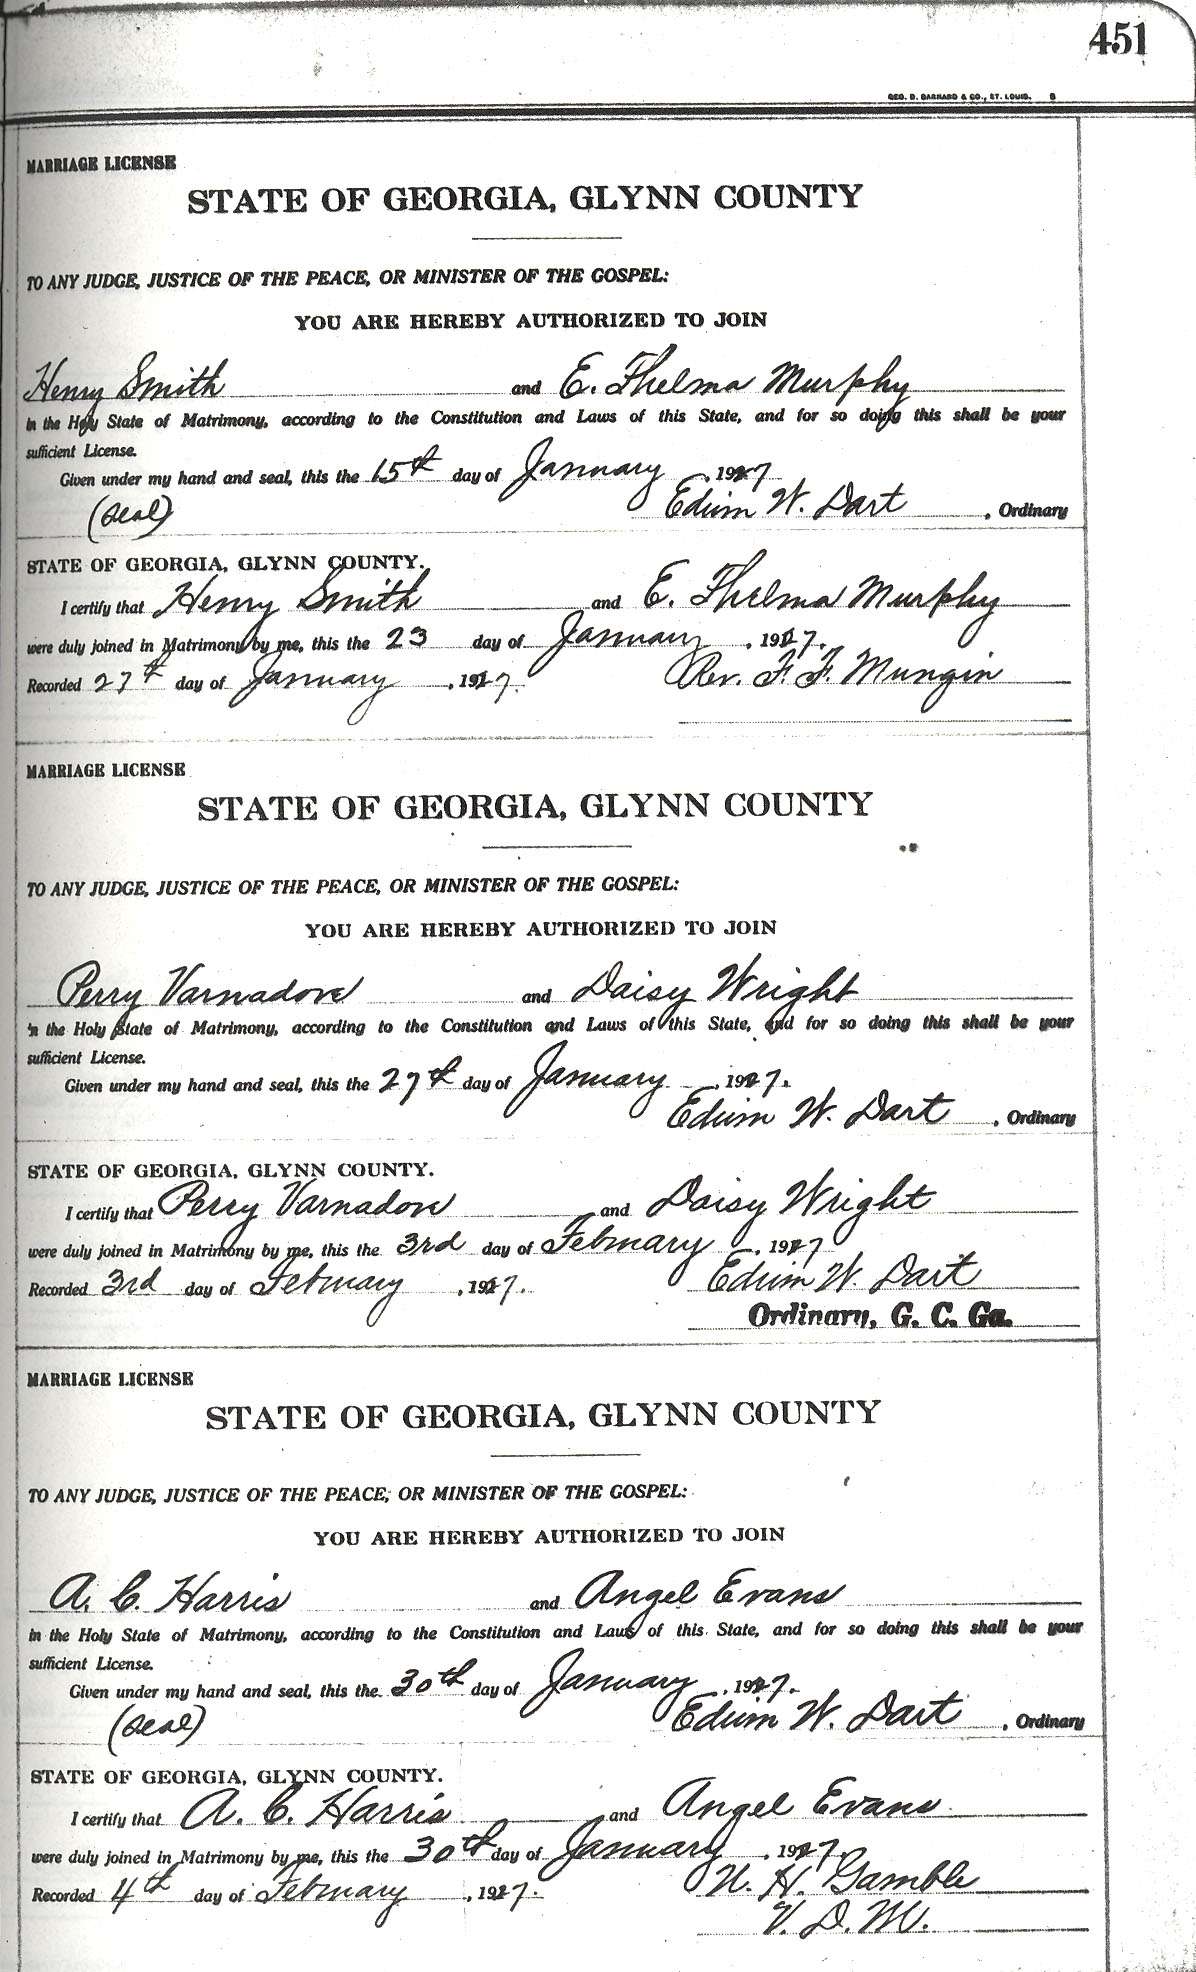 451
GEO. D. BARNARD & CO., ST. LOUIS. B
MARRIAGE LICENSE
STATE OF GEORGIA, GLYNN COUNTY
TO ANY JUDGE, JUSTICE OF THE PEACE, OR MINISTER OF THE GOSPEL:
YOU ARE HEREBY AUTHORIZED TO JOIN
Henry Smith and E. Thelma Murphy
in the Holy State of Matrimony, according to the Constitution and Laws of this State, and for so doing this shall be your
sufficient License.
Given under my hand and seal, this the 15th day of January, 1927
(seal) Edwin W. Dart, Ordinary
STATE OF GEORGIA, GLYNN COUNTY.
I certify that Henry Smith and E. Thelma Murphy
were duly joined in Matrimony by me, this the 23 day of January, 1927.
Recorded 27th day of January, 1927. Rev. F. F. Mungin
MARRIAGE LICENSE
STATE OF GEORGIA, GLYNN COUNTY
TO ANY JUDGE, JUSTICE OF THE PEACE, OR MINISTER OF THE GOSPEL:
YOU ARE HEREBY AUTHORIZED TO JOIN
Perry Varnadore and Daisy Wright
in the Holy State of Matrimony, according to the Constitution and Laws of this State, and for so doing this shall be your
sufficient License.
Given under my hand and seal, this the 27th day of January, 1927.
Edwin W. Dart, Ordinary
STATE OF GEORGIA, GLYNN COUNTY.
I certify that Perry Varnadore and Daisy Wright
were duly joined in Matrimony by me, this the 3rd day of February, 1927
Recorded 3rd day of February, 1927. Edwin W. Dart
Ordinary, G. C. Ga.
MARRIAGE LICENSE
STATE OF GEORGIA, GLYNN COUNTY
TO ANY JUDGE, JUSTICE OF THE PEACE, OR MINISTER OF THE GOSPEL:
YOU ARE HEREBY AUTHORIZED TO JOIN
A. C. Harris and Angel Evans
in the Holy State of Matrimony, according to the Constitution and Laws of this State, and for so doing this shall be your
sufficient License.
Given under my hand and seal, this the 30th day of January, 1927.
(seal) Edwin W. Dart, Ordinary
STATE OF GEORGIA, GLYNN COUNTY.
I certify that A. C. Harris and Angel Evans
were duly joined in Matrimony by me, this the 30th day of January, 1927.
Recorded 4th day of February, 1927. H. Gamble
V. D. M.